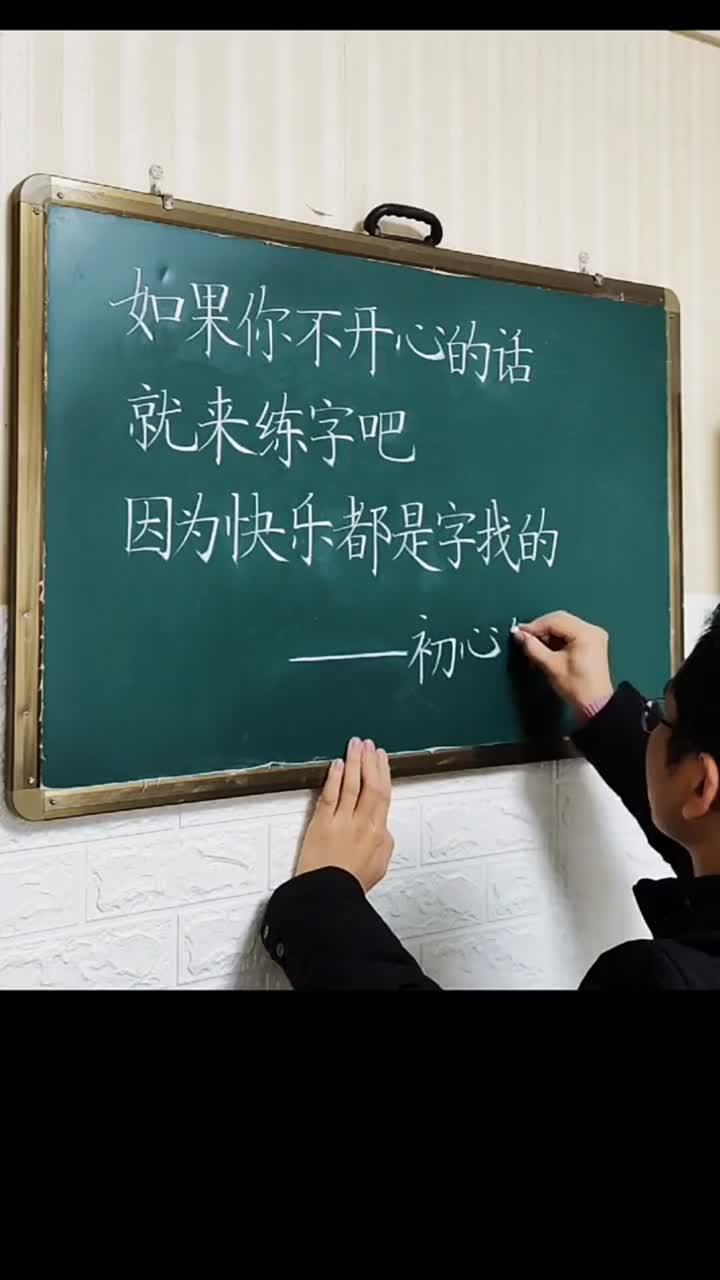 如果你不开心的话
就来练字吧
因为快乐都是字找的
——初心